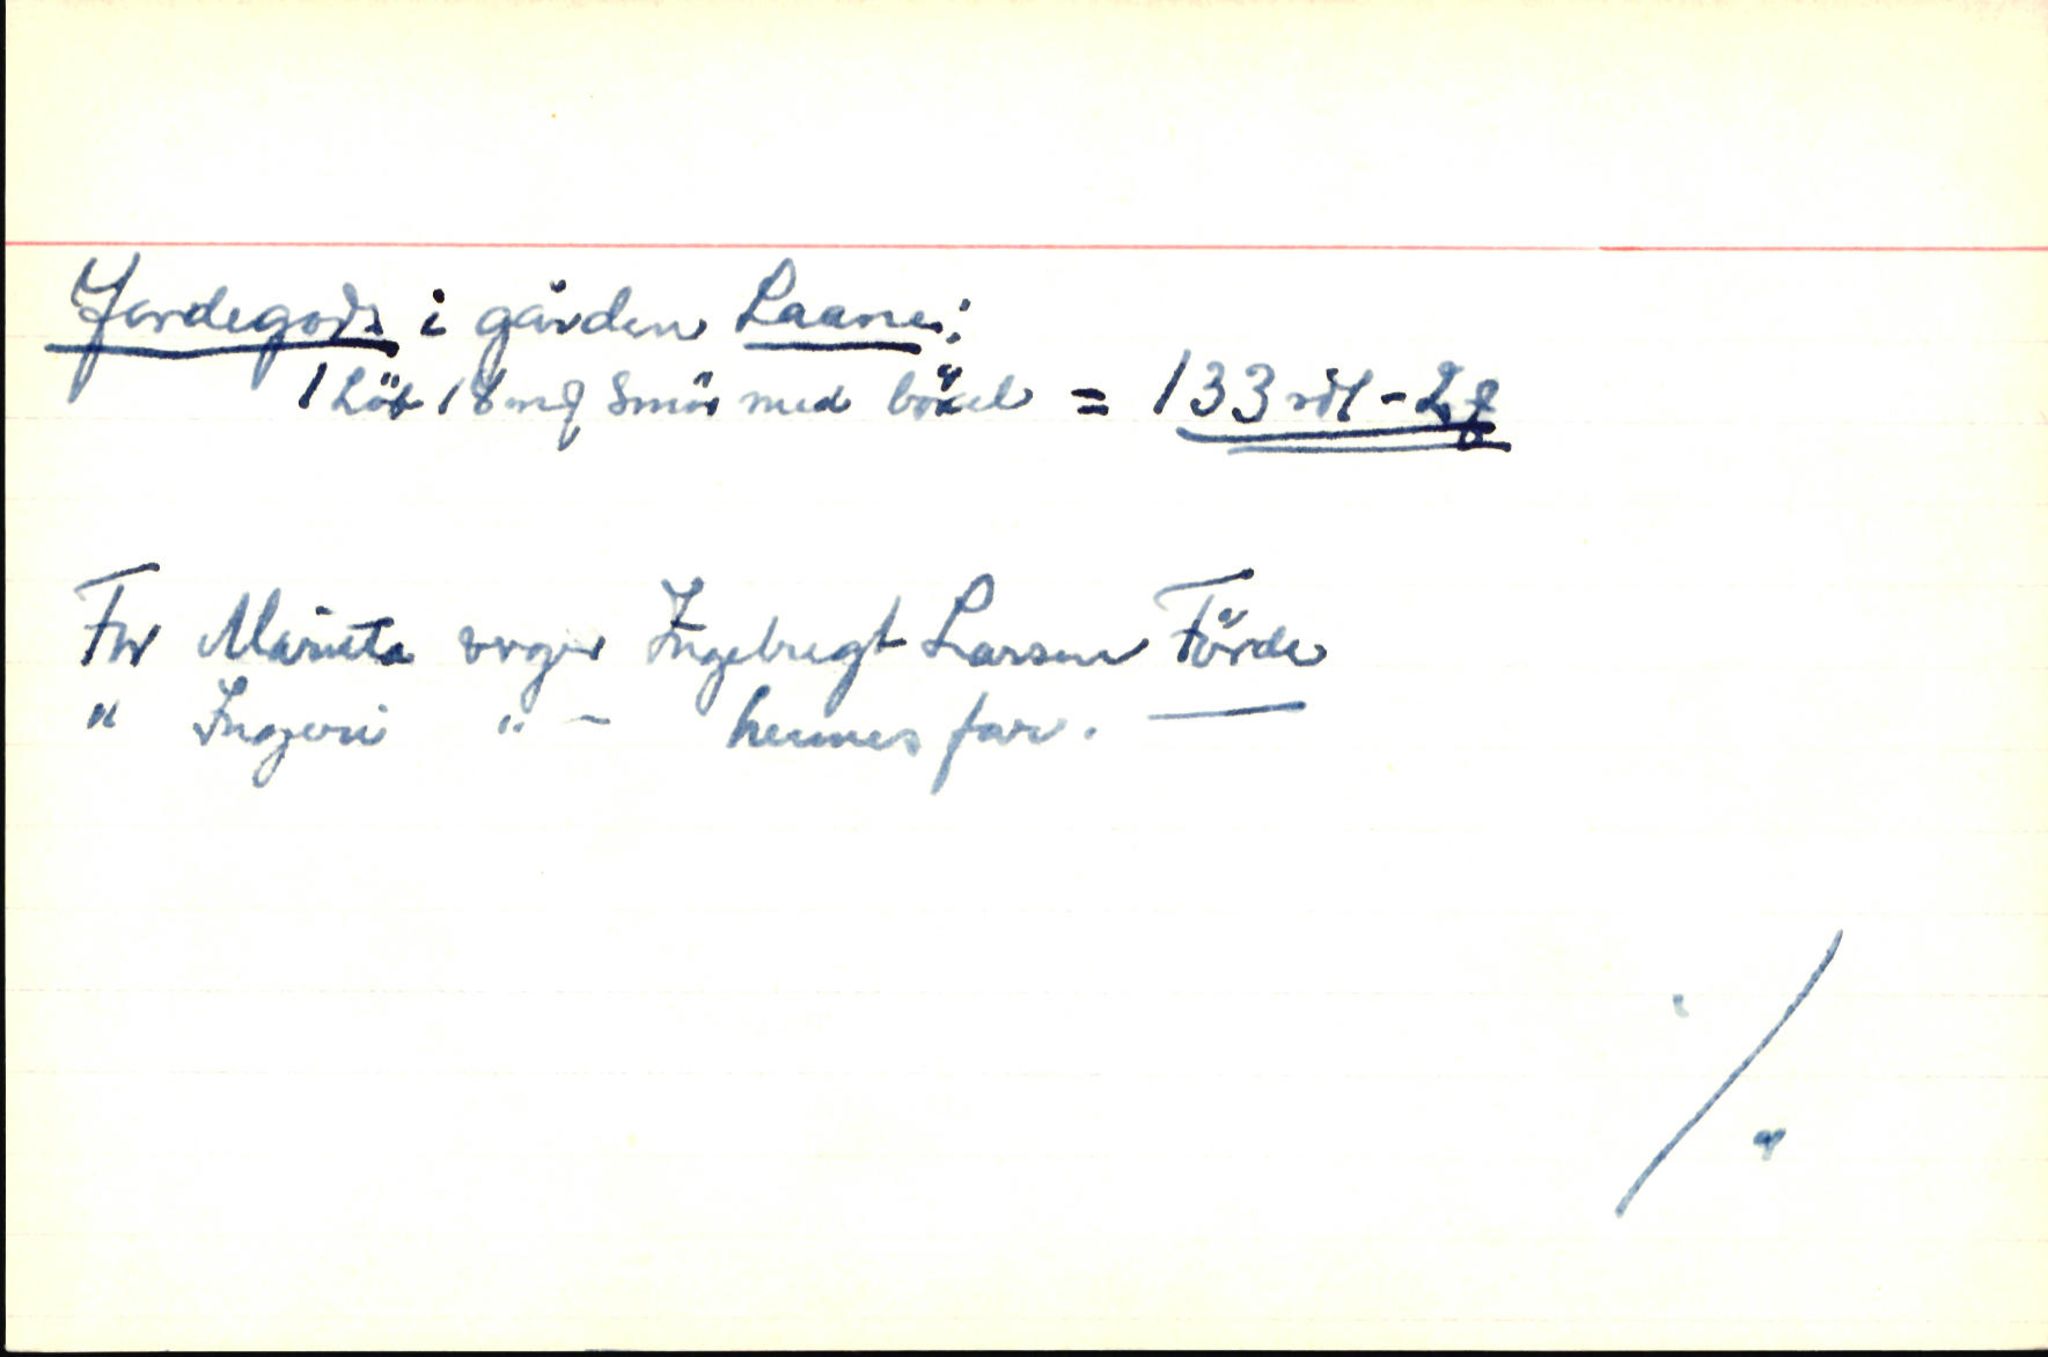 Jordegods i gården Laane:
1 Löb 18 mg Smör med böxel = 133 rdl - 2 ℔
For Marieta verger Ingebregt Larsen Förde
" Ingeri " - hennes far. —
./.